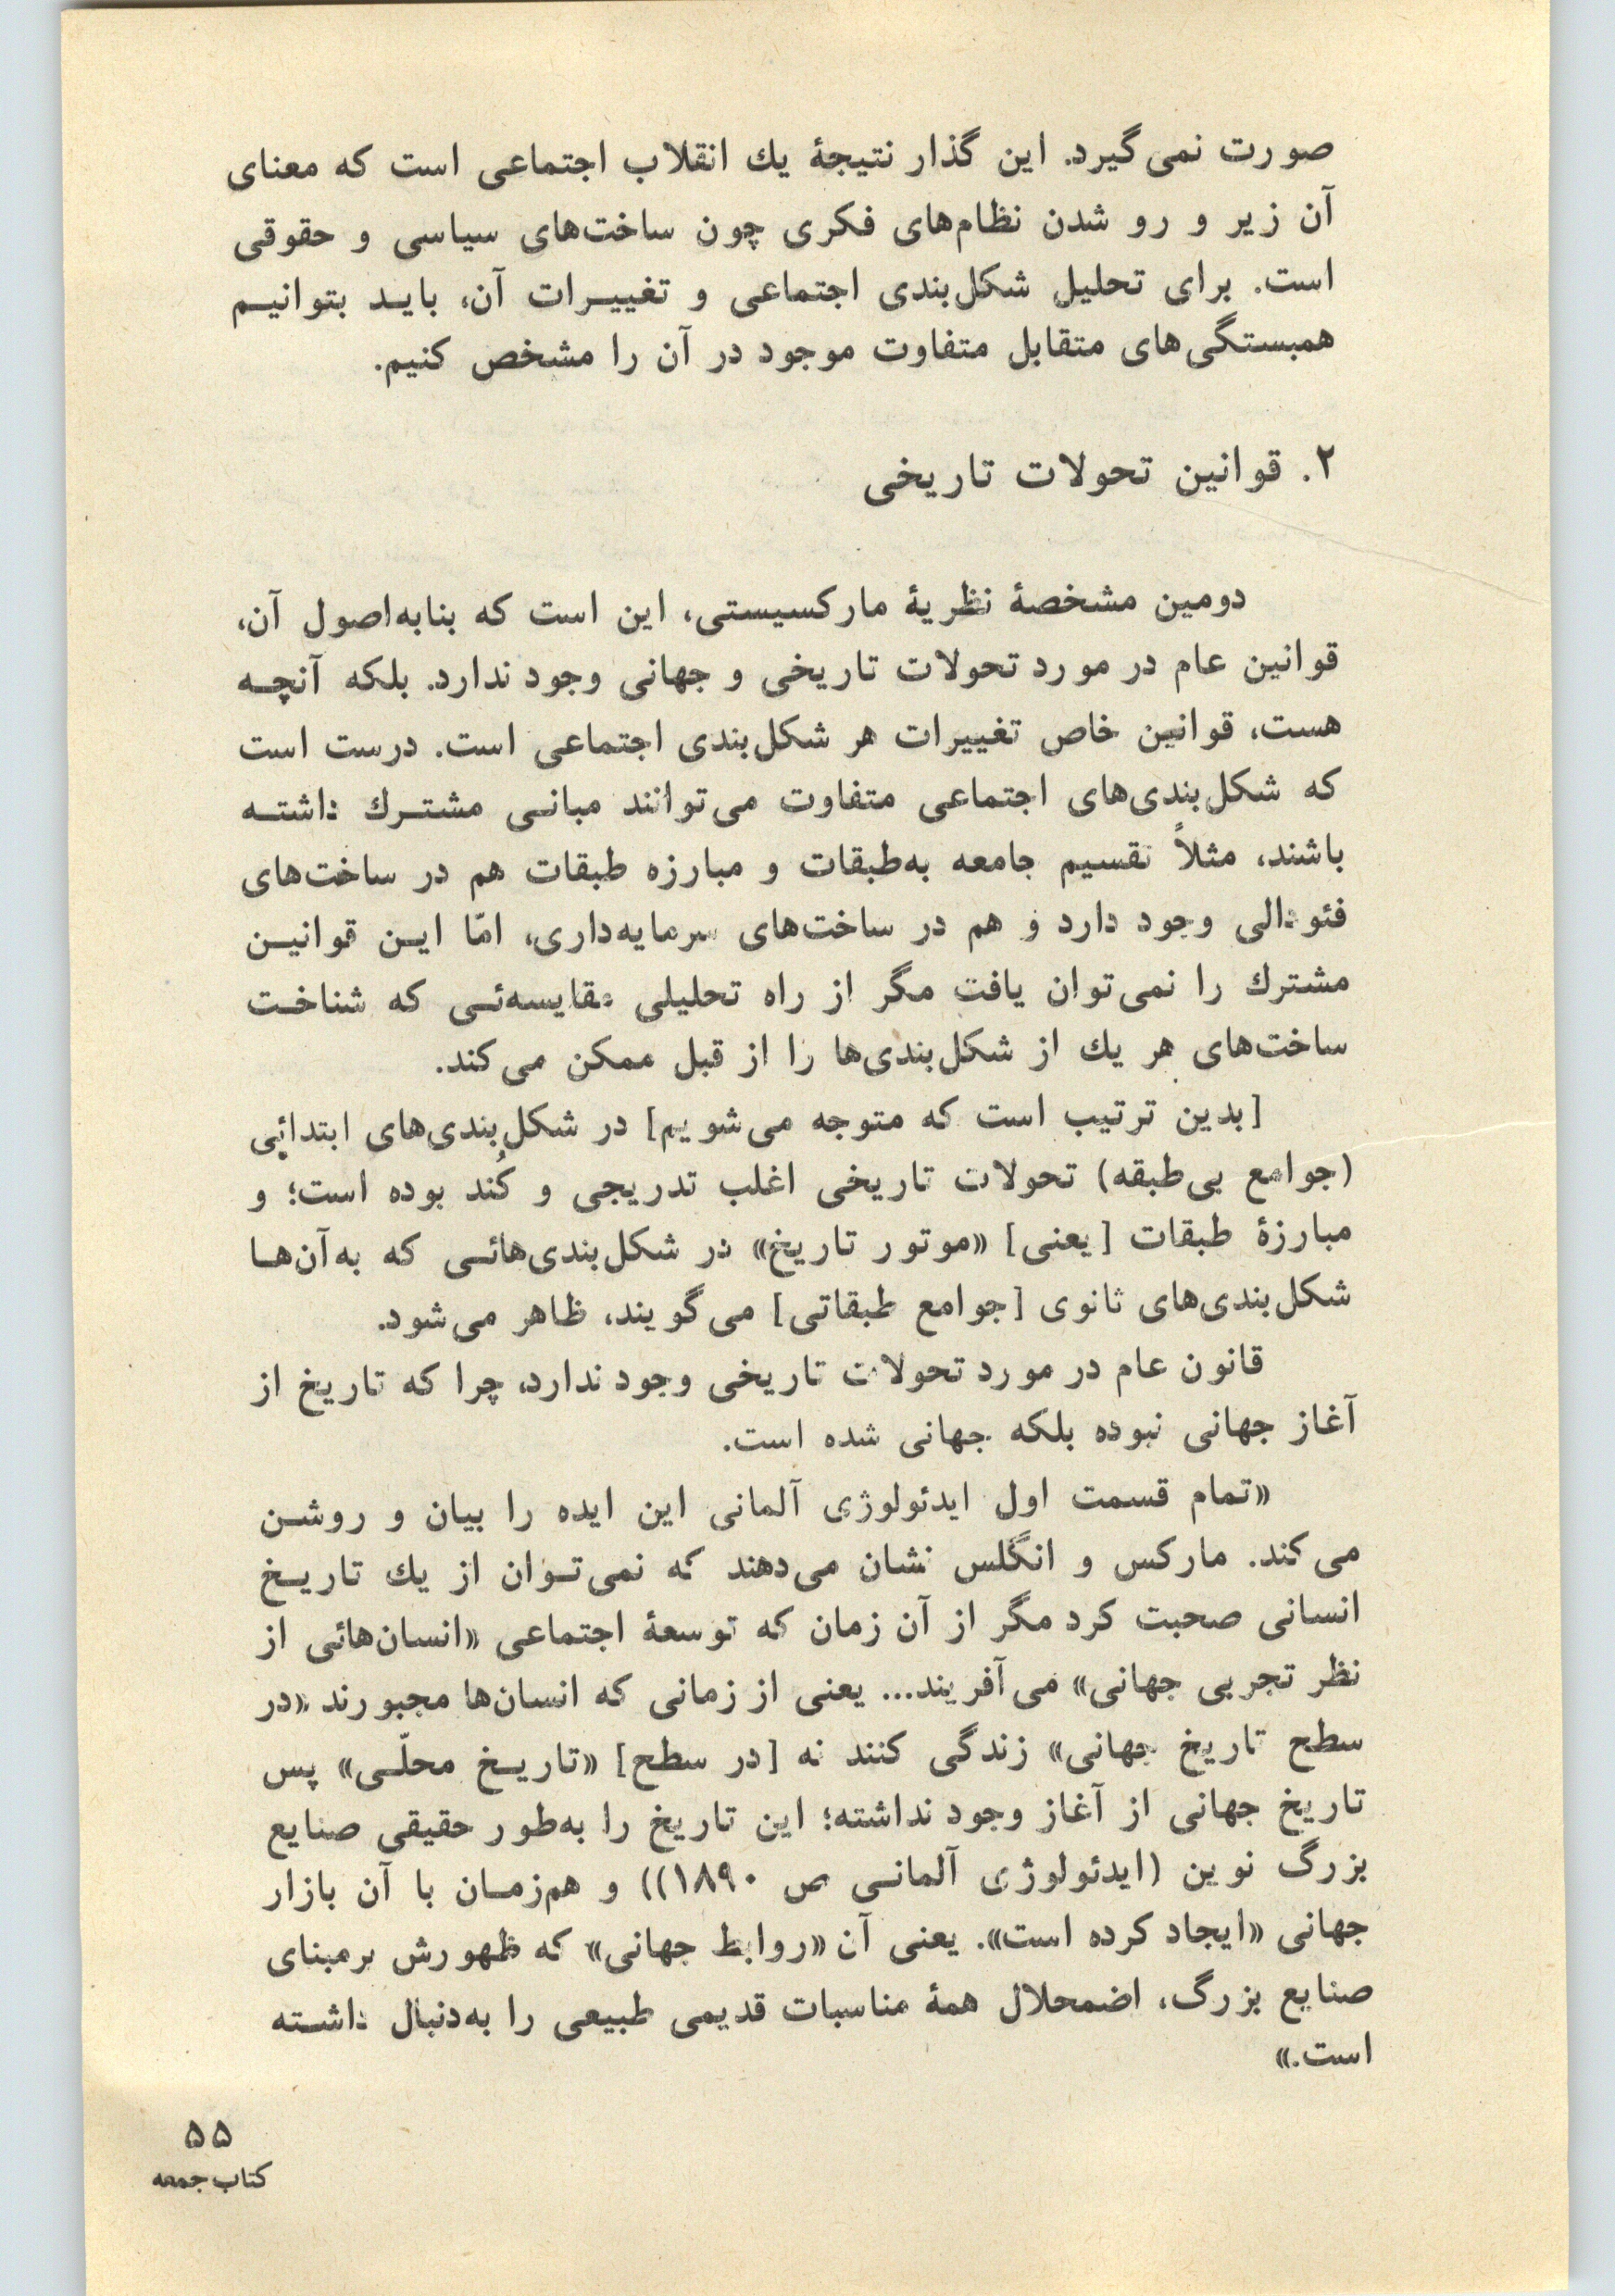 صورت نمی‌گیرد. این گذار نتیجهٔ یك انقلاب اجتماعی است که معنای
آن زیر و رو شدن نظام‌های فکری چون ساخت‌های سیاسی و حقوقی
است. برای تحلیل شکل‌بندی اجتماعی و تغییـرات آن، بایـد بتوانیـم
همبستگی‌های متقابل متفاوت موجود در آن را مشخص کنیم.
۲. قوانین تحولات تاریخی
دومین مشخصهٔ نظریهٔ مارکسیستی، این است که بنابه‌اصول آن،
قوانین عام در مورد تحولات تاریخی و جهانی وجود ندارد. بلکه آنچـه
هست، قوانین خاص تغییرات هر شکل‌بندی اجتماعی است. درست است
که شکل‌بندی‌های اجتماعی متفاوت می‌توانند مبانـی مشتـرك داشتـه
باشند، مثلاً تقسیم جامعه به‌طبقات و مبارزه طبقات هم در ساخت‌های
فئودالی وجود دارد و هم در ساخت‌های سرمایه‌داری، امّا ایـن قوانیـن
مشترك را نمی‌توان یافت مگر از راه تحلیلی مقایسه‌ئـی که شناخـت
ساخت‌های هر یك از شکل‌بندی‌ها را از قبل ممکن می‌کند.
[بدین ترتیب است که متوجه می‌شویم] در شکل‌بندی‌های ابتدایی
(جوامع بی‌طبقه) تحولات تاریخی اغلب تدریجی و کُند بوده است؛ و
مبارزهٔ طبقات [یعنی] «موتور تاریخ» در شکل‌بندی‌هائـی که به‌آن‌هـا
شکل‌بندی‌های ثانوی [جوامع طبقاتی] می‌گویند، ظاهر می‌شود.
قانون عام در مورد تحولات تاریخی وجود ندارد، چرا که تاریخ از
آغاز جهانی نبوده بلکه جهانی شده است.
«تمام قسمت اول ایدئولوژی آلمانی این ایده را بیان و روشـن
می‌کند. مارکس و انگلس نشان می‌دهند که نمی‌تـوان از یك تاریـخ
انسانی صحبت کرد مگر از آن زمان که توسعهٔ اجتماعی «انسان‌هائی از
نظر تجربی جهانی» می‌آفریند... یعنی از زمانی که انسان‌ها مجبورند «در
سطح تاریخ جهانی» زندگی کنند نه [در سطح] «تاریـخ محلّـی» پس
تاریخ جهانی از آغاز وجود نداشته؛ این تاریخ را به‌طور حقیقی صنایع
بزرگ نوین (ایدئولوژی آلمانـی ص ۱۸۹۰)) و هم‌زمـان با آن بازار
جهانی «ایجاد کرده است». یعنی آن «روابط جهانی» که ظهورش برمبنای
صنایع بزرگ، اضمحلال همهٔ مناسبات قدیمی طبیعی را به‌دنبال داشـته
است.»
۵۵
کتاب جمعه